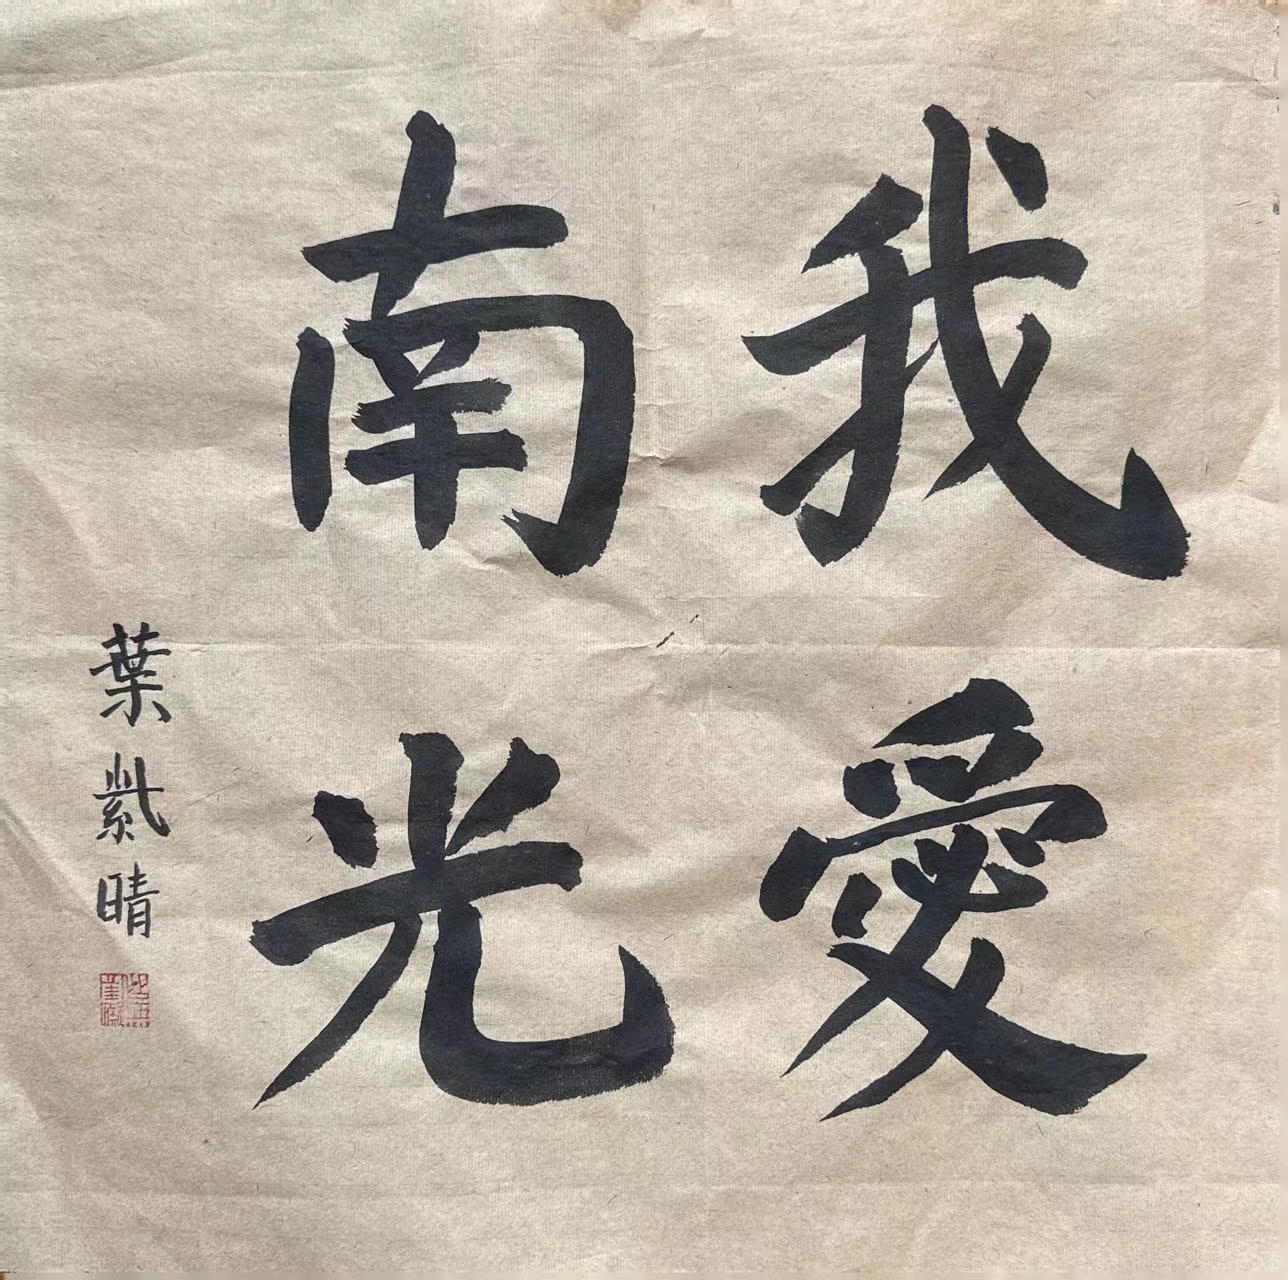 我愛
南光
葉紫晴